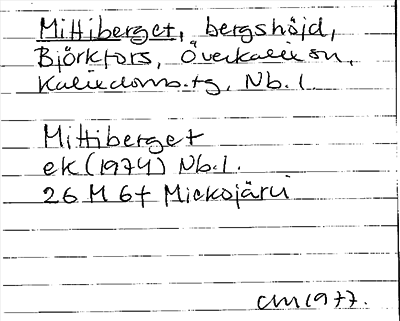 Mittiberget, bergshöjd,
Björkfors, Överkalix sn,
Kalix doms.tg, Nb.l.
Mittiberget
ek (1974) Nb.l.
26 M 6f Mickojärvi
CM 1977.